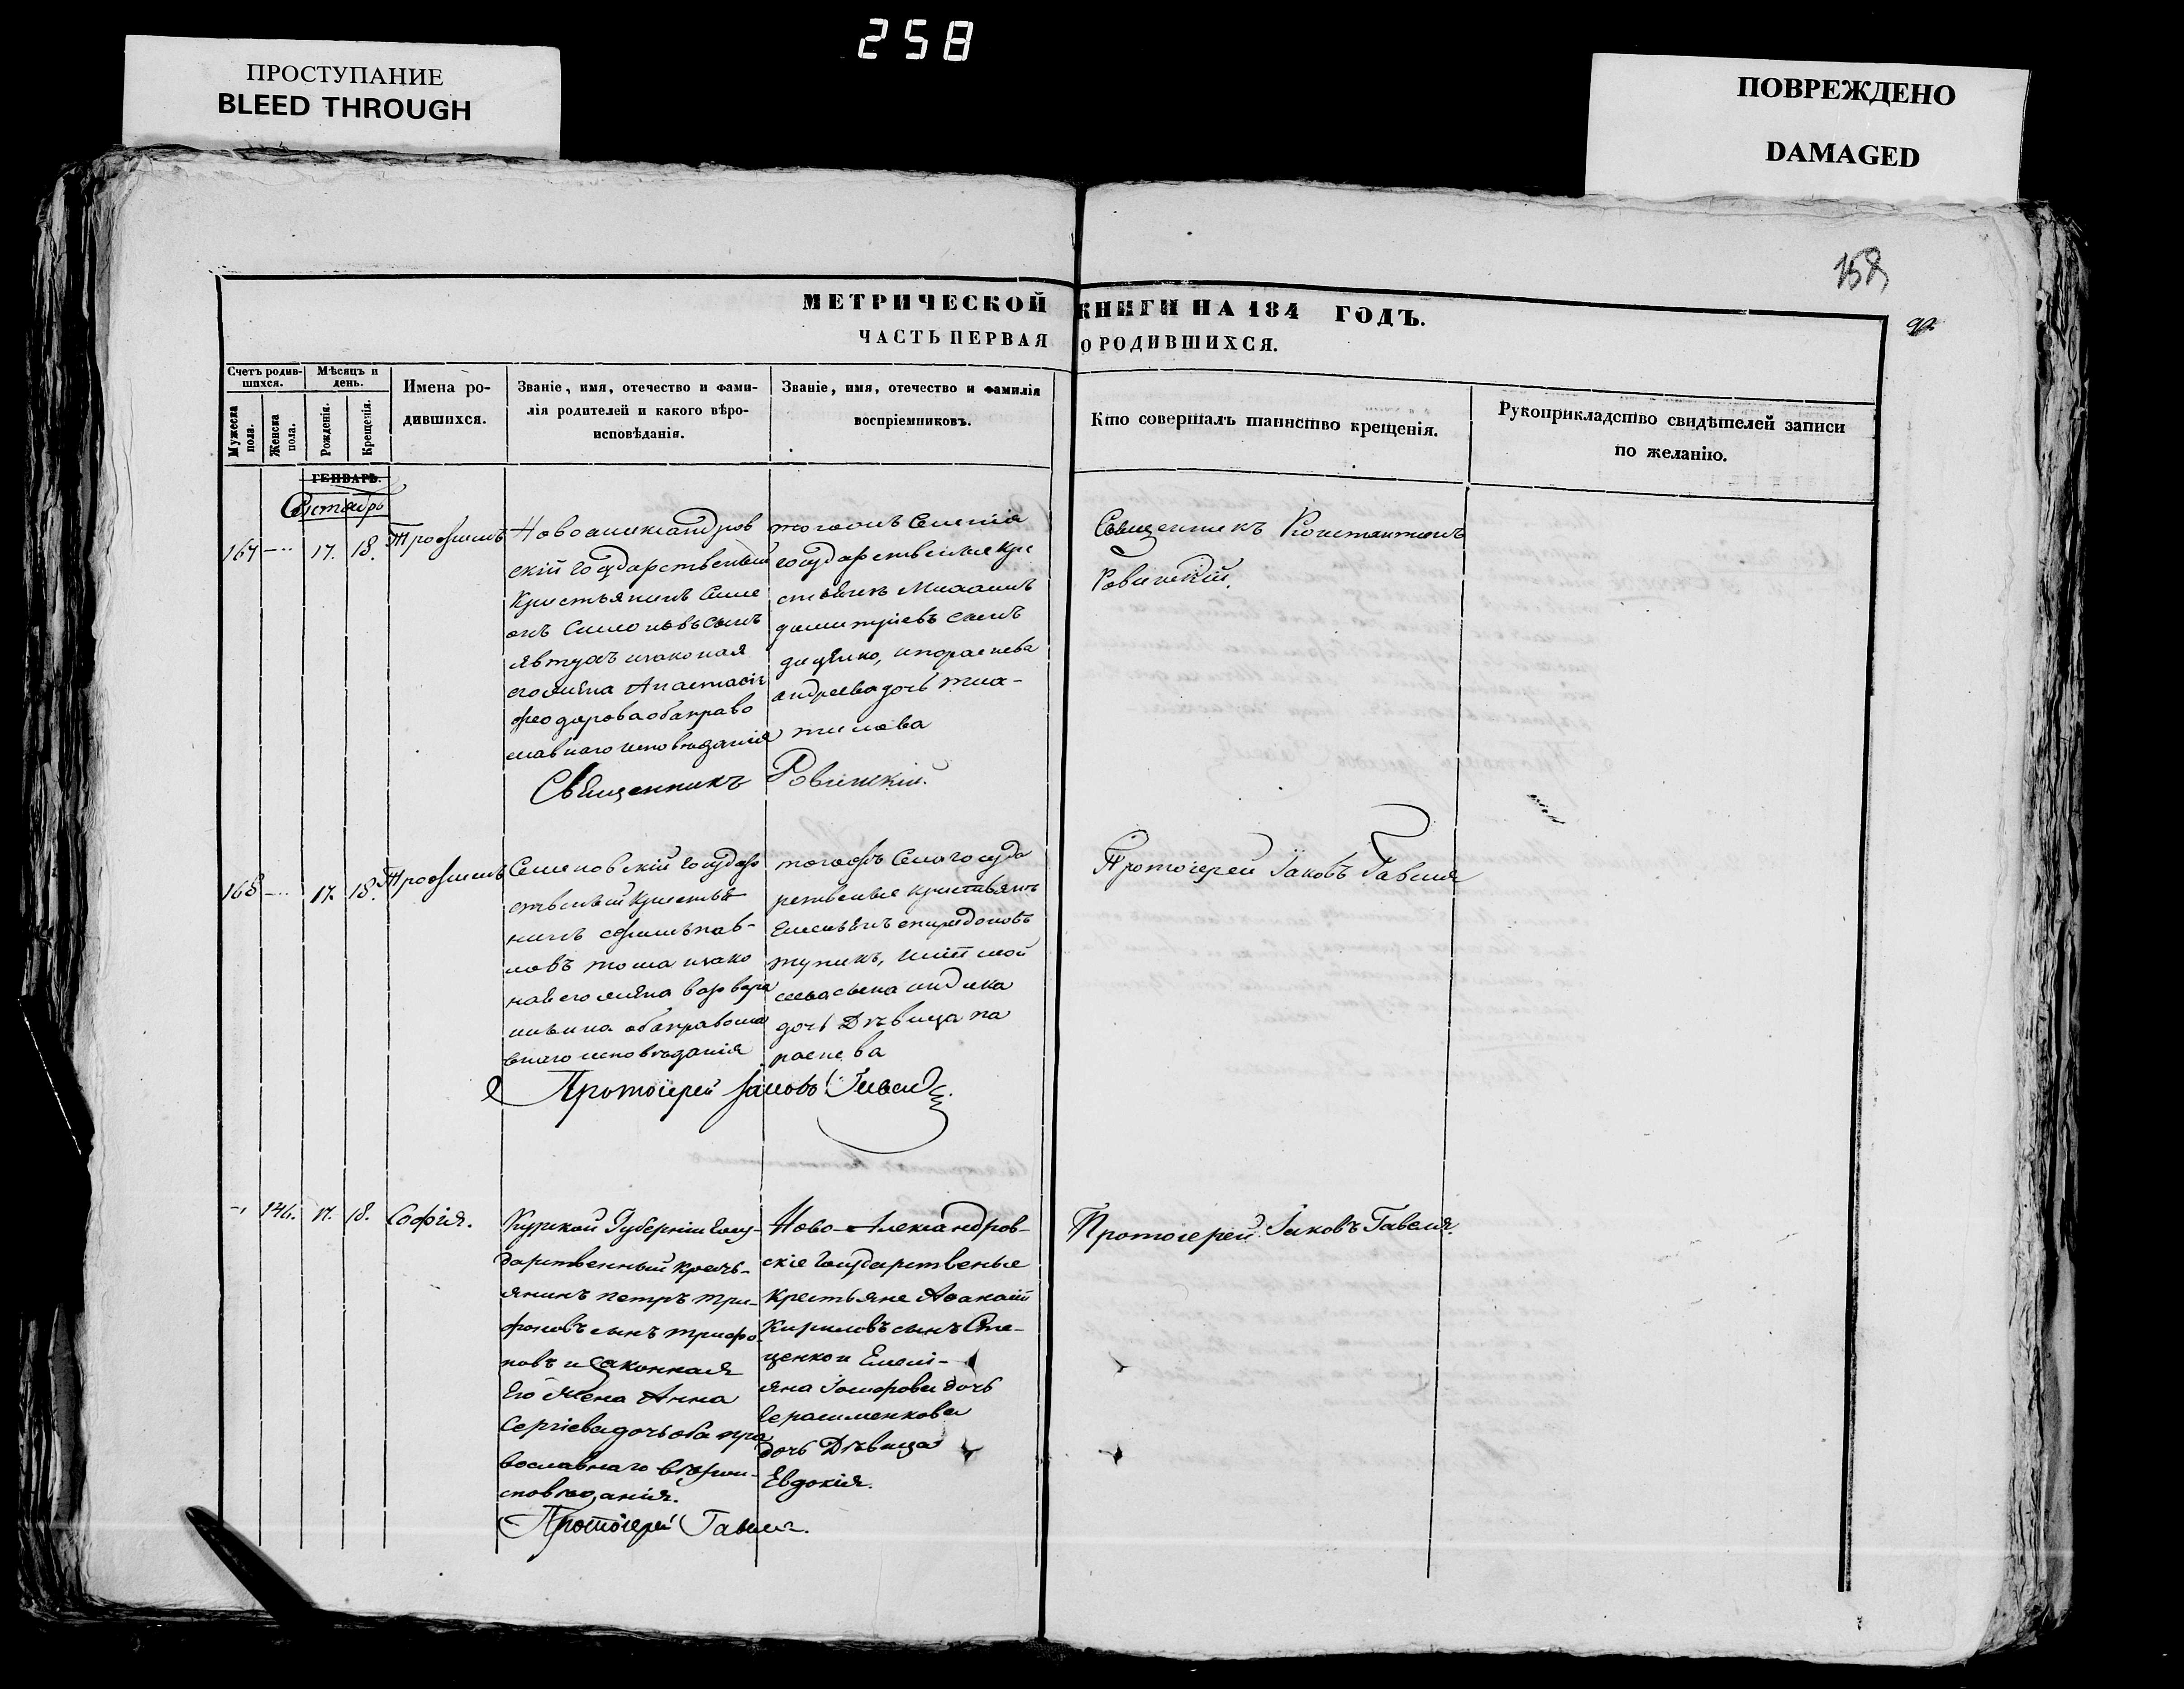 258
ПРОСТУПАНИЕ
BLEED THROUGH
ПОВРЕЖДЕНО
DAMAGED
МЕТРИЧЕСКОЙ КНИГИ НА 184 ГОДЪ.
ЧАСТЬ ПЕРВАЯ О РОДИВШИХСЯ.
Счетъ родив-
шихся.
Мужеска
пола.
Женска
пола.
Мѣсяцъ и
день.
Рожденія.
Крещенія.
Имена ро-
дившихся.
Званіе, имя, отечество и фами-
лія родителей и какого вѣро-
исповѣданія.
Званіе, имя, отечество и фамилія
воспріемниковъ.
Кто совершалъ таинство крещенія.
Рукоприкладство свидѣтелей записи
по желанію.
ГЕНВАРЬ.
Сентябрь
167 17. 18.
Трофимъ
Новоалександров
скій государственный
крестьянинъ Симе
онъ Симоновъ сынъ
явтухъ изаконая
его жена Анастасія
феодорова оба право
славнаго исповѣданія
Священникъ Ровинскій.
государственые кре
димитріевъ сынъ
диденко, ипараскева
андреева дочь
Священникъ Константинъ
Ровинскій.
168 17. 18.
Трофимъ
Семеновскій государ
ственый крестья
нинъ ефимъ пав-
ловъ тома изако
ная его жена варвара
ильина оба правосла
внаго исповѣданія
рственые крестьянъ
спиридоновъ
дочь Дѣвица па
раскева
Протоіерей Іаковъ Гавеля
Протоіерей Іаковъ Гавеля
146. 17. 18.
Софія.
Курской Губерніи Госу-
дарственный кресть-
янинъ петръ три-
фоновъ сынъ трифо-
новъ и законная
Его жена Анна
Сергіева дочь оба пра
вославнаго вѣрои-
сповѣданія.
Протоіерей Гавеля.
Ново-Александров-
скіе Государственые
Крестьяне Афанасій
Кириловъ сынъ Сте-
ценко и Емелі-
яна дочь
Герасименкова
дочь Дѣвица
Евдокія.
Протоіерей Іаковъ Гавеля.